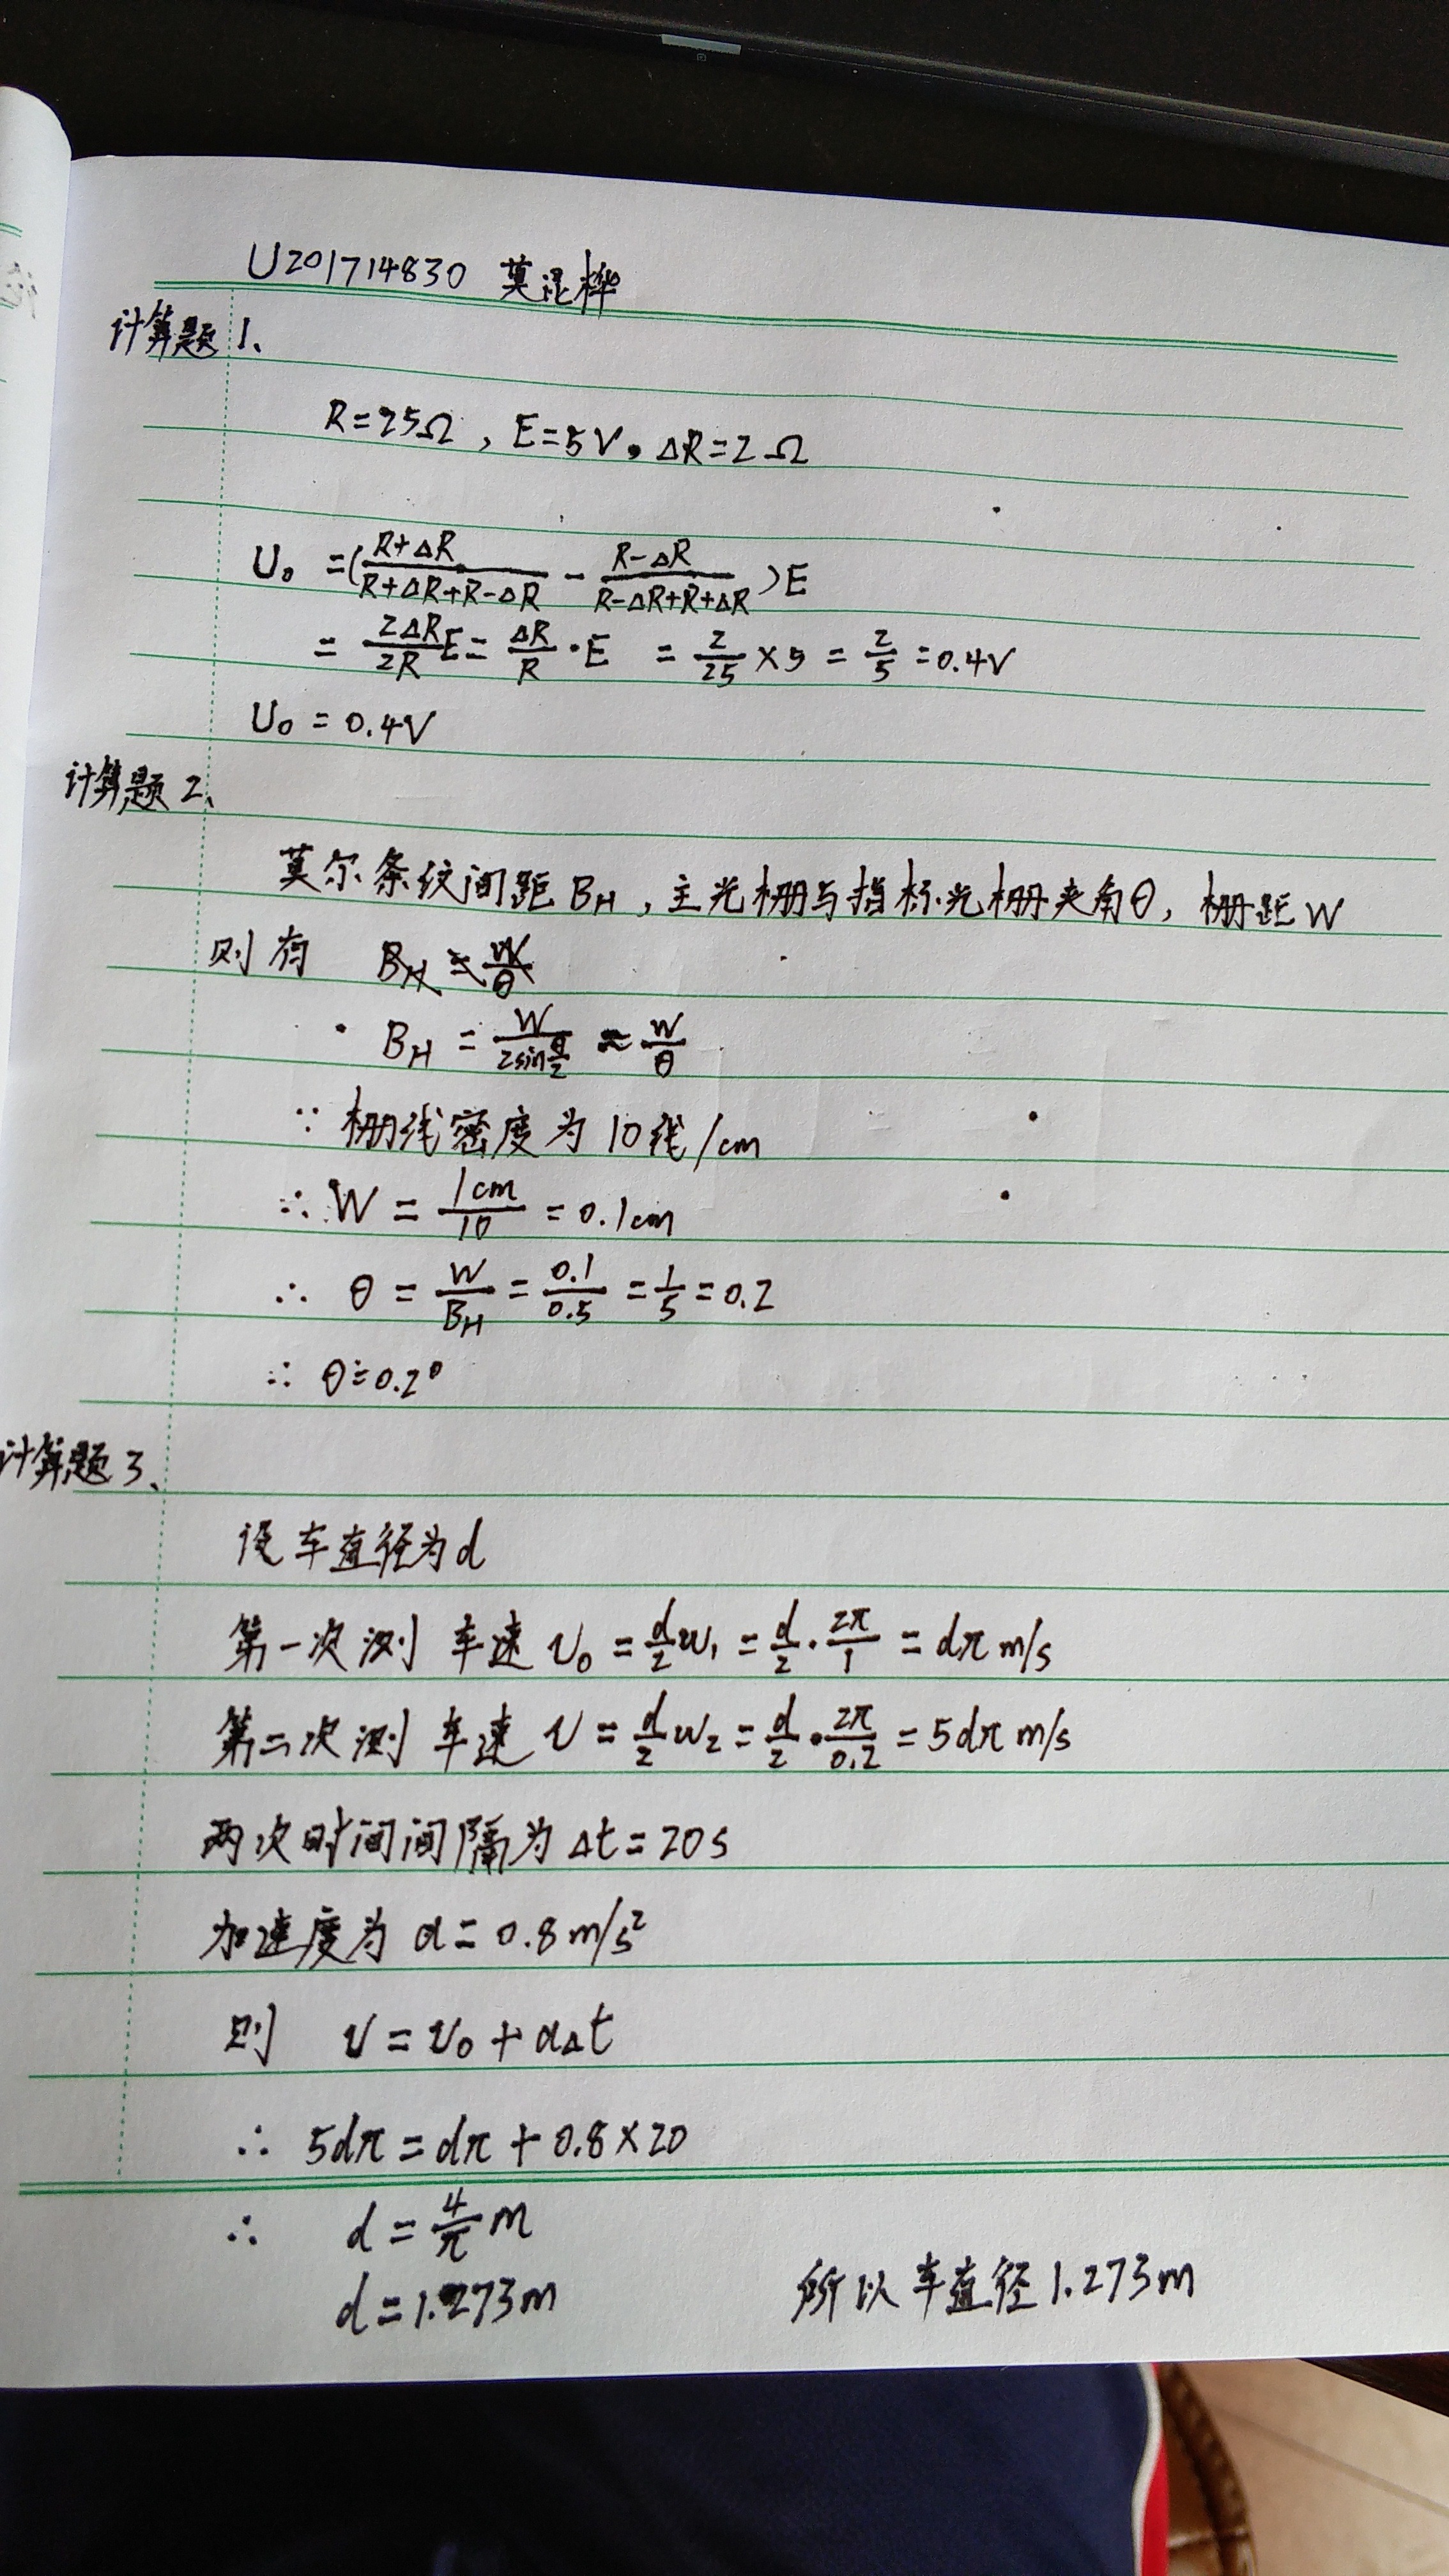 U201714830 莫混桦
计算题1、
R=25Ω, E=5V, ΔR=2Ω
U₀ =(\frac{R+ΔR}{R+ΔR+R-ΔR} - \frac{R-ΔR}{R-ΔR+R+ΔR})E
= \frac{2ΔR}{2R}E= \frac{ΔR}{R}·E = \frac{2}{25}×5 = \frac{2}{5} =0.4V
U₀ = 0.4V
计算题2、
莫尔条纹间距 B_H, 主光栅与指标光栅夹角θ, 栅距W
则有 B_H = \frac{W}{θ}
B_H = \frac{W}{2sin\frac{θ}{2}} ≈ \frac{W}{θ}
∵ 栅线密度为10线/cm
∴ W = \frac{1cm}{10} = 0.1cm
∴ θ = \frac{W}{B_H} = \frac{0.1}{0.5} = \frac{1}{5} = 0.2
∴ θ=0.2°
计算题3、
设车直径为d
第一次测 车速 v₀ = \frac{d}{2}w₁ = \frac{d}{2}·\frac{2π}{1} = dπ m/s
第二次测 车速 v = \frac{d}{2}w₂ = \frac{d}{2}·\frac{2π}{0.2} = 5dπ m/s
两次时间间隔为 Δt=20s
加速度为 a=0.8m/s²
则 v=v₀+aΔt
∴ 5dπ=dπ+0.8×20
∴ d=\frac{4}{π}m
d=1.273m 所以车直径1.273m